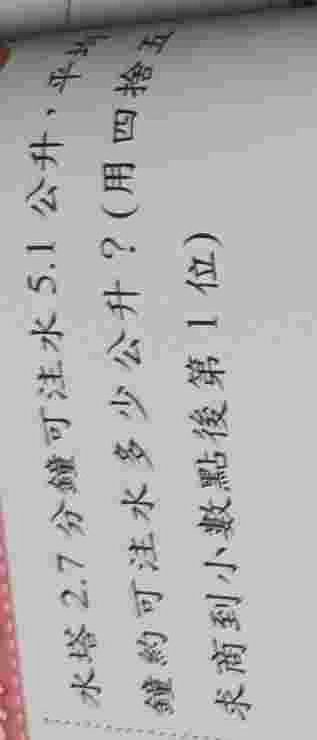 水塔2.7分鐘可注水5.1公升，平均
鐘約可注水多少公升？(用四捨五
求商到小數點後第1位)